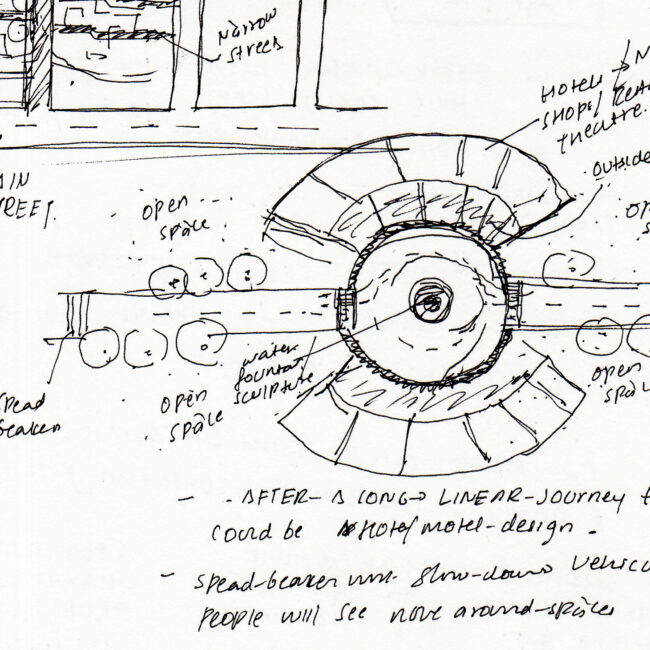 Narrow
streets
Hotels
SHOPS/
theatre.
outside
AIN
REET.
open
space
water
fountain
sculpture
open
space
open
spead
beaker
- . AFTER - A LONG LINEAR - JOURNEY
could be Hotel/motel - design.
- spead-beaker will slow-down vehic
People will see move around - spaces